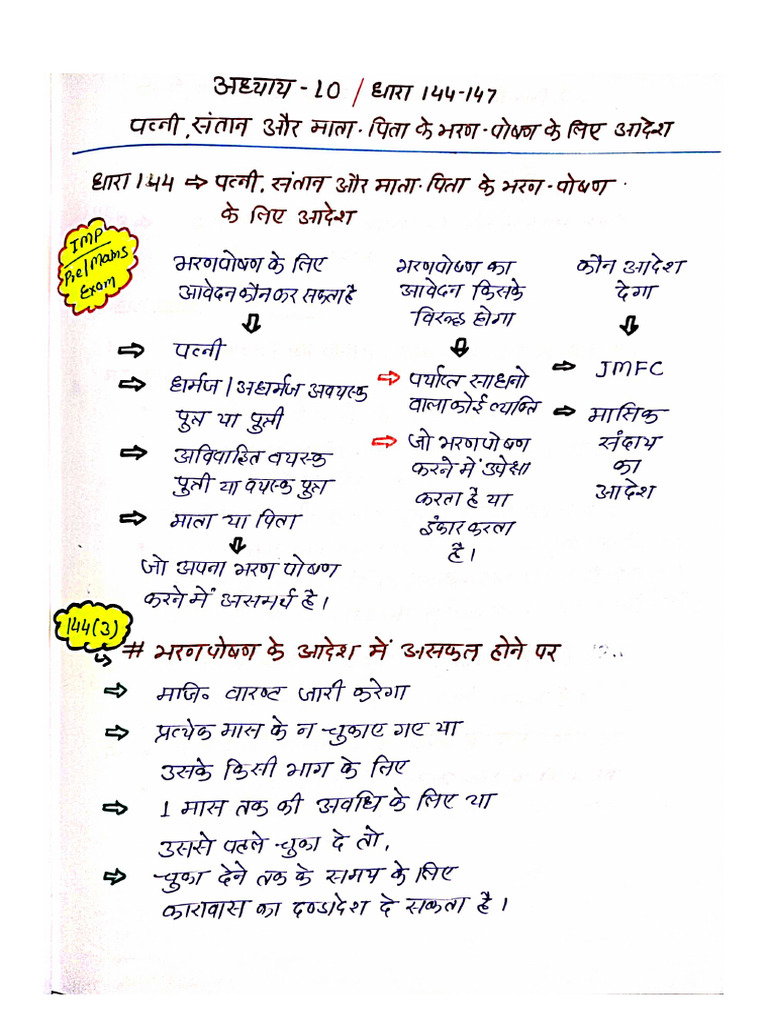 अध्याय - 10 / धारा 144-147
पत्नी, संतान और माता-पिता के भरण-पोषण के लिए आदेश
धारा 144 ⇒ पत्नी, संतान और माता-पिता के भरण-पोषण
के लिए आदेश
IMP
Pre/Mains
Exam
भरणपोषण के लिए
आवेदन कौन कर सकता है
⇒ पत्नी
⇒ धर्मज / अधर्मज अवयस्क
पुत्र या पुत्री
⇒ अविवाहित वयस्क
पुत्री या वयस्क पुत्र
⇒ माता या पिता
जो अपना भरण पोषण
करने में असमर्थ है।
भरणपोषण का
आवेदन किसके
विरुद्ध होगा
⇒ पर्याप्त साधनो
वाला कोई व्यक्ति
⇒ जो भरणपोषण
करने में उपेक्षा
करता है या
इंकार करता
है।
कौन आदेश
देगा
⇒ JMFC
⇒ मासिक
संदाय
का
आदेश
144(3)
# भरणपोषण के आदेश में असफल होने पर
⇒ माजि० वारण्ट जारी करेगा
⇒ प्रत्येक मास के न चुकाए गए या
उसके किसी भाग के लिए
⇒ 1 मास तक की अवधि के लिए या
उससे पहले चुका दे तो,
⇒ चुका देने तक के समय के लिए
कारावास का दण्डादेश दे सकता है।